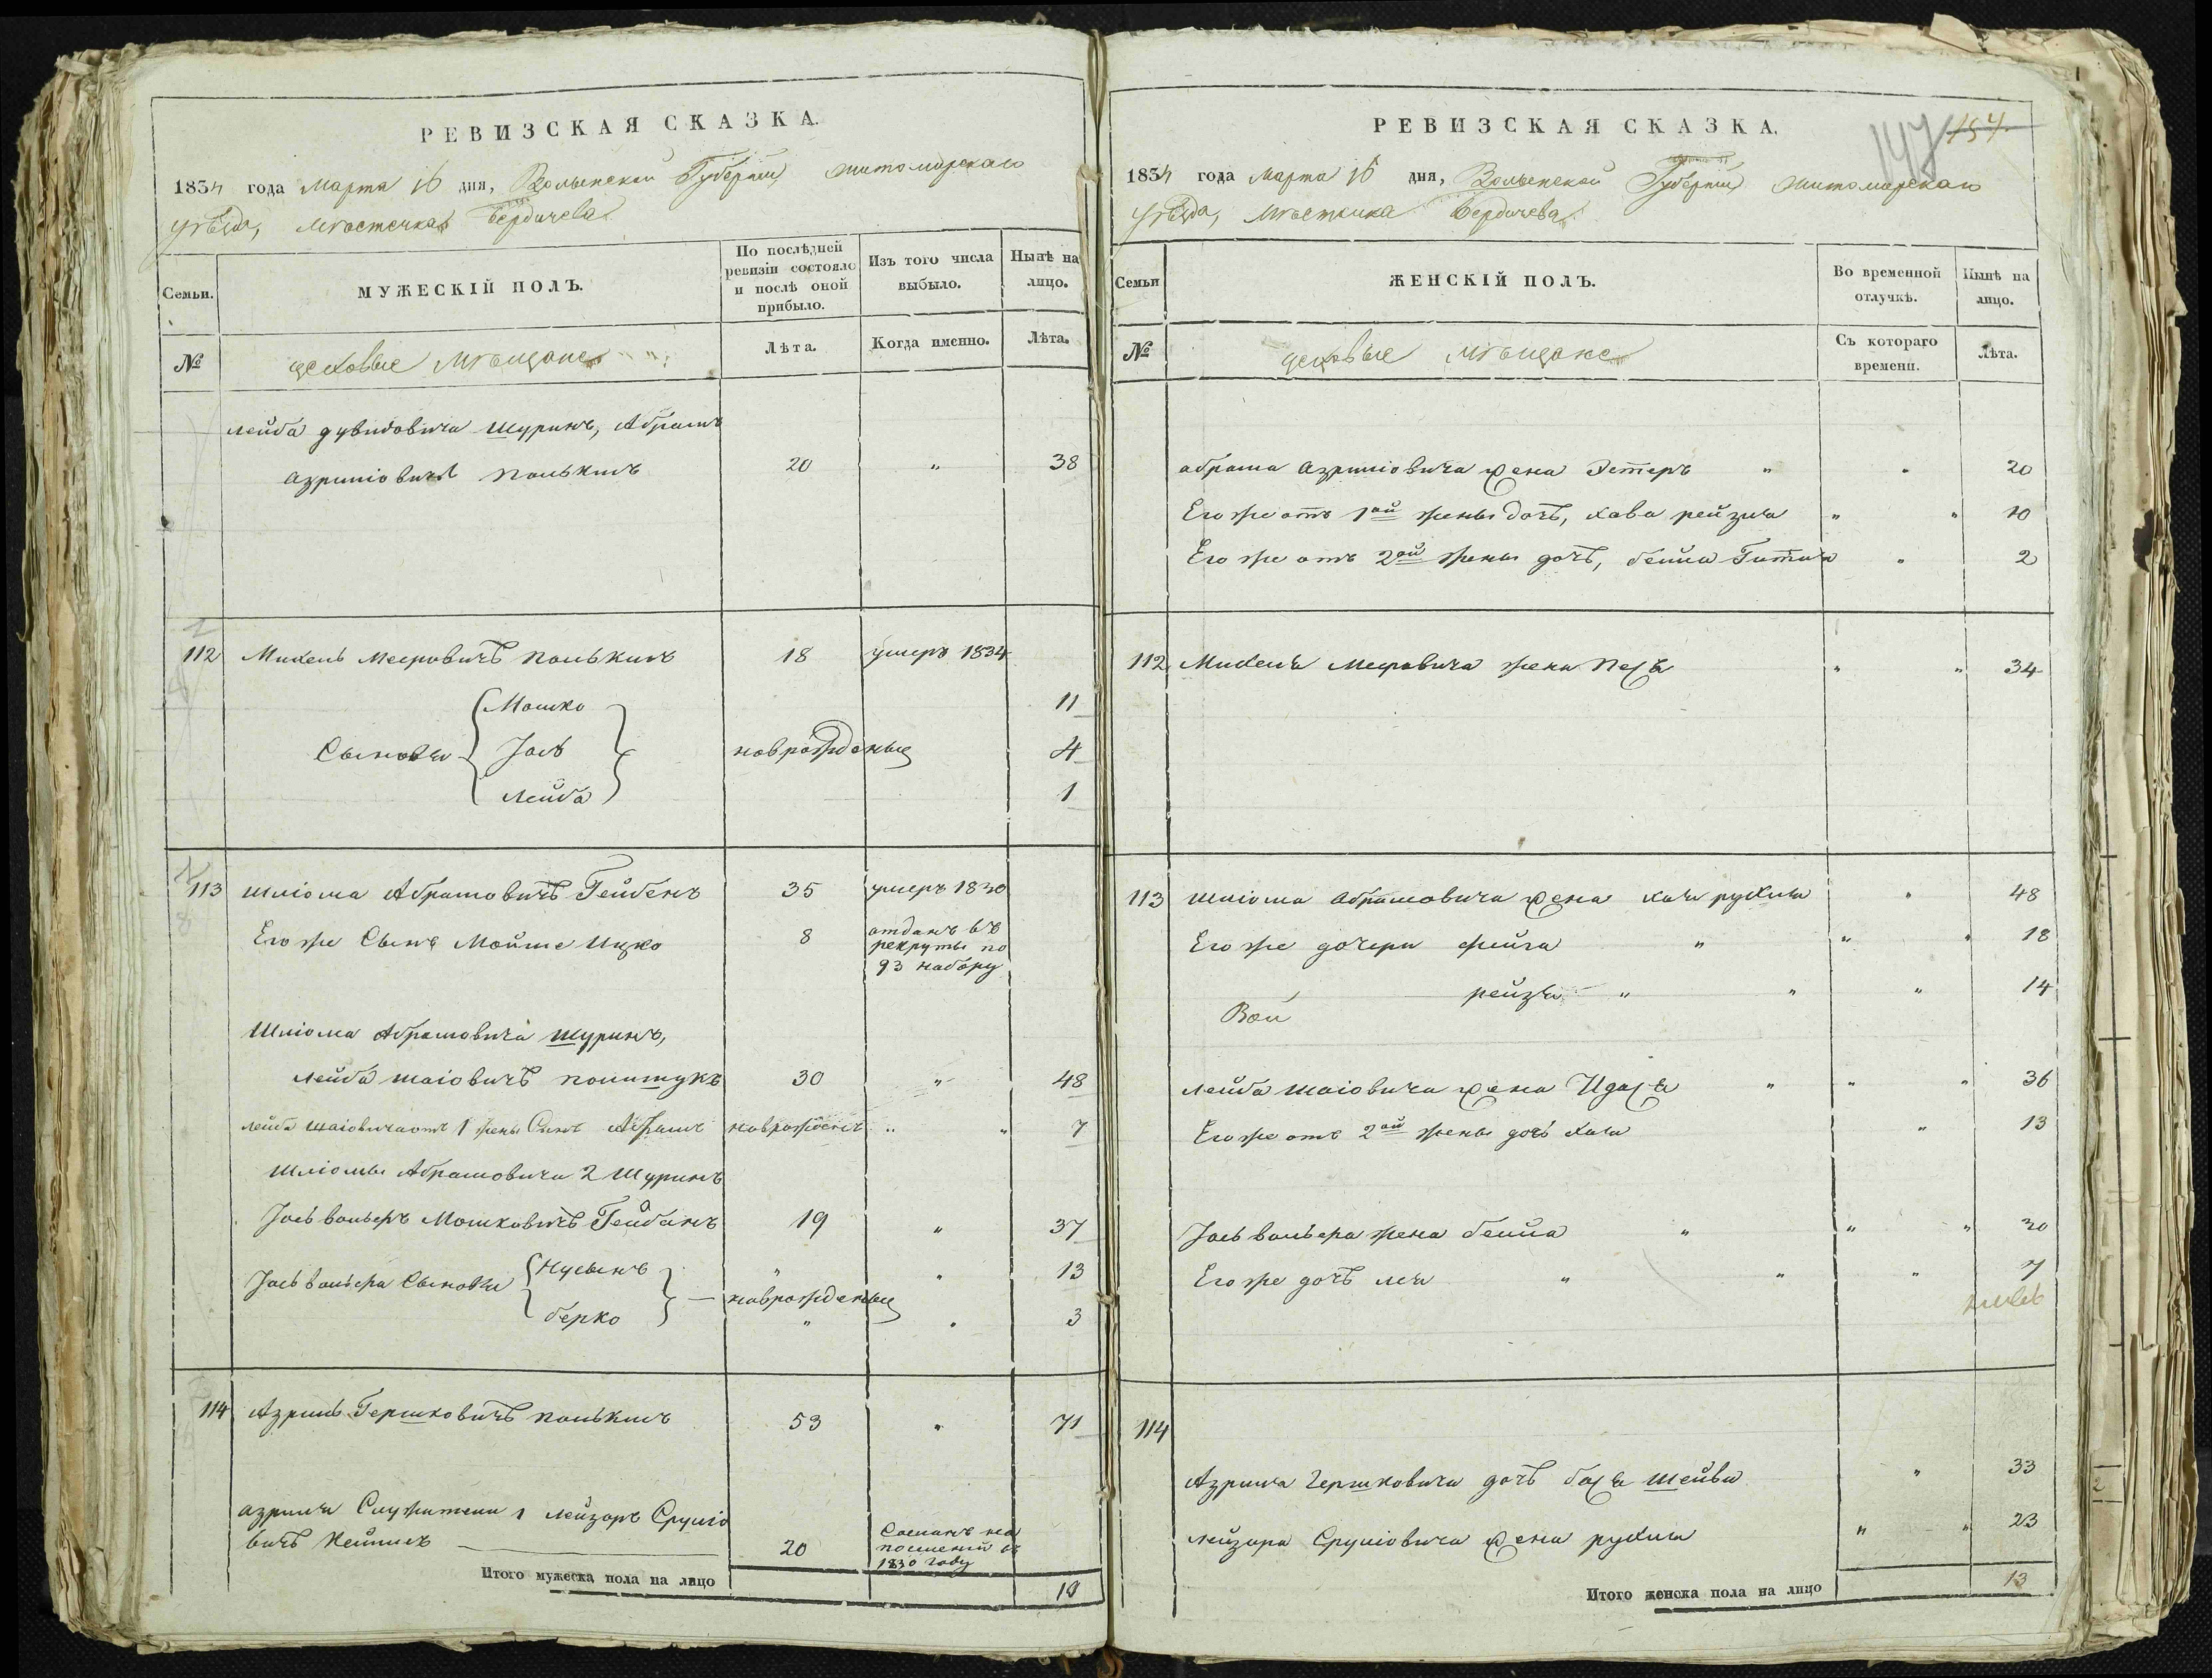 РЕВИЗСКАЯ СКАЗКА.
1834 года Марта 16 дня, Волынской Губерніи Житомирскаго
уѣзда, мѣстечка Бердичева
Семьи.
МУЖЕСКІЙ ПОЛЪ.
По послѣдней ревизіи состояло и послѣ оной прибыло.
Изъ того числа выбыло.
Нынѣ на лицо.
№
цеховые мѣщане
Лѣта.
Когда именно.
Лѣта.
лейба дувидовича шуринъ, Абрамъ
азриліовичъ 20 " 38
112 Михель Мееровичъ 18 умеръ 1834
Мошко 11
Сыновья Іось новрожденые 4
лейба 1
113 шліома Абрамовичъ Гейбенъ 35 умеръ 1830
Его же Сынъ Мойше Ицко 8 отданъ въ
рекруты по
93 набору
Шліома Абрамовича шуринъ,
лейба шаіовичъ полищукъ 30 " 48
лейба шаіовича отъ 1 жены Сынъ Абрамъ новрожденъ " " 7
Шліомы Абрамовича 2 Шуринъ
Іось вольферъ Мошковичъ Гейбанъ 19 " 37
Іось вольфера Сыновья Нусынъ " " 13
новрожденые
берко " " 3
114 Азриль Гершковичъ 53 " 71
азриля Служители 1 лейзоръ Сруліо
вичъ 20 Сосланъ на
поселеніи въ
1830 году
Итого мужеска пола на лицо 10
РЕВИЗСКАЯ СКАЗКА.
147 154
1834 года Марта 16 дня, Волынской Губерніи Житомирскаго
уѣзда, мѣстечка Бердичева
Семьи
ЖЕНСКІЙ ПОЛЪ.
Во временной отлучкѣ.
Нынѣ на лицо.
№
цеховые мѣщане
Съ котораго времени.
Лѣта.
абрама азриліовича жена Эстеръ " " 20
Его же отъ 1ой жены дочь, хава рейзля " " 10
Его же отъ 2ой жены дочь, бейла Гитля " 2
112 Михеля Меировича жена Песя " " 34
113 шліома абрамовича жена хая рухля " 48
Его же дочери фейга " " " 18
рейзя " " " 14
лейба шаіовича жена Идася " " " 36
Его же отъ 2ой жены дочь хая " 13
Іось вольфера жена бейла " " " 30
Его же дочь лея " " " 7
114
Азриля Гершковича дочь бася шейва " 33
лейзора Сруліовича жена рухля " " 23
Итого женска пола на лицо 13